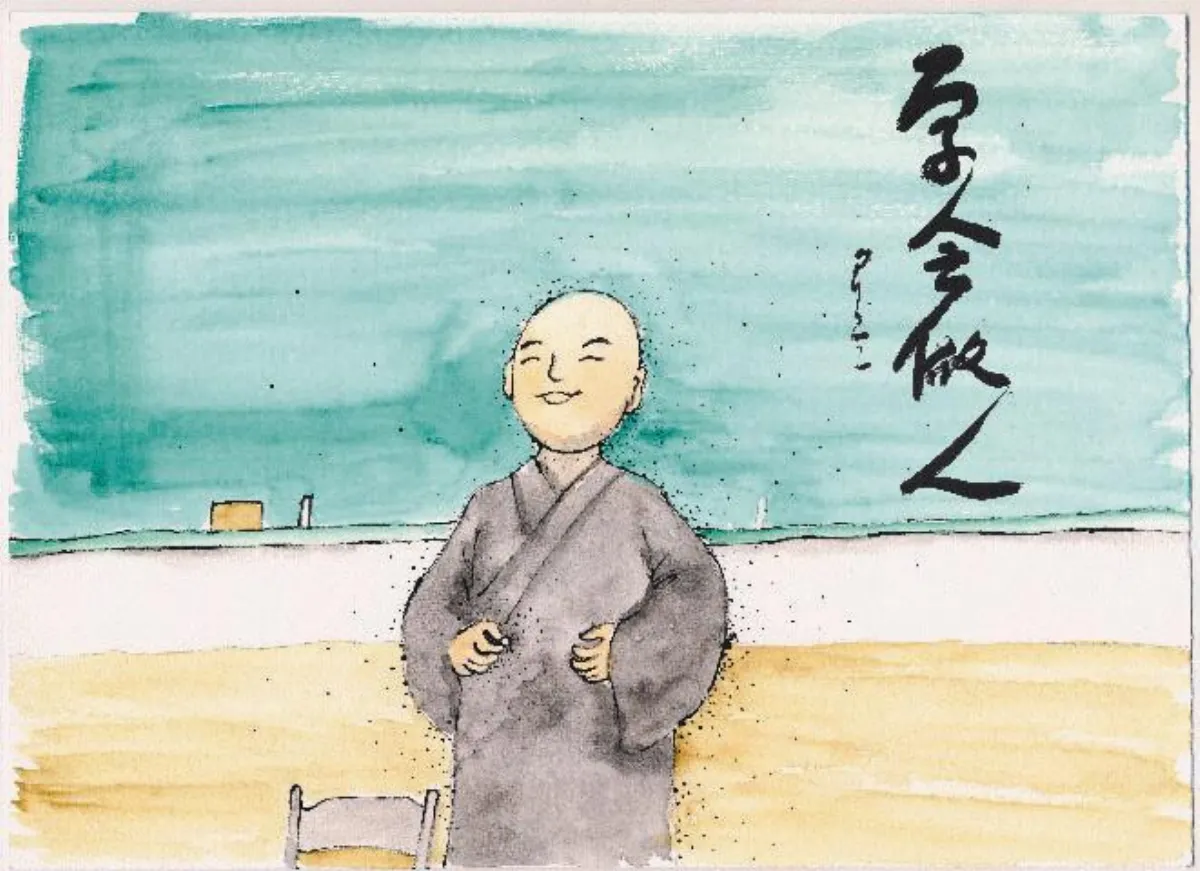 学会做人